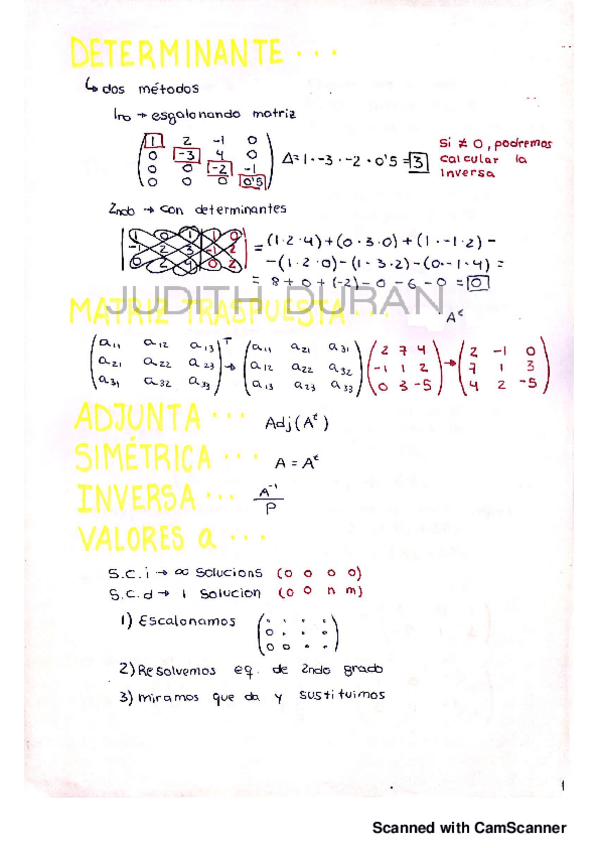 DETERMINANTE ...
↳ dos métodos
1ro → esgalonando matriz
(1 2 -1 0
0 -3 4 0
0 0 -2 -1
0 0 0 0'5) Δ=1·-3·-2·0'5=3
Si ≠ 0, podremos
calcular la
inversa
2ndo → con determinantes
|1 0 1 1 0
-1 2 3 -1 2
0 2 4 0 2| = (1·2·4)+(0·3·0)+(1·-1·2)-
-(1·2·0)-(1·3·2)-(0·-1·4) =
= 8+0+(-2)-0-6-0=0
JUDITH DURAN
MATRIZ TRASPUESTA ... Aᵗ
(a₁₁ a₁₂ a₁₃)ᵀ → (a₁₁ a₂₁ a₃₁) (2 7 4) → (2 -1 0)
(a₂₁ a₂₂ a₂₃) (a₁₂ a₂₂ a₃₂) (-1 1 2) (7 1 3)
(a₃₁ a₃₂ a₃₃) (a₁₃ a₂₃ a₃₃) (0 3 -5) (4 2 -5)
ADJUNTA ... Adj(Aᵗ)
SIMÉTRICA ... A = Aᵗ
INVERSA ... A⁻¹/P
VALORES a ...
S.C.i → ∞ solucions (0 0 0 0)
S.C.d → 1 solucion (0 0 n m)
1) Escalonamos (· · · ·
0 · · ·
0 0 · ·)
2) Resolvemos eq. de 2ndo grado
3) miramos que da y sustituimos
1
Scanned with CamScanner